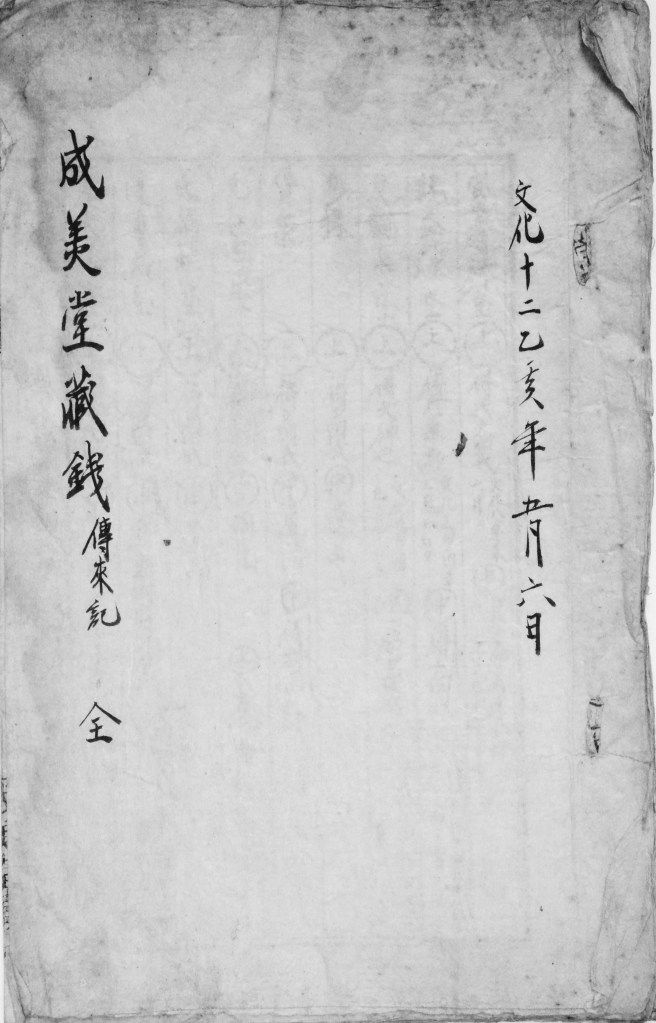 文化十二乙亥年五月六日
成美堂藏錢傳來記 全